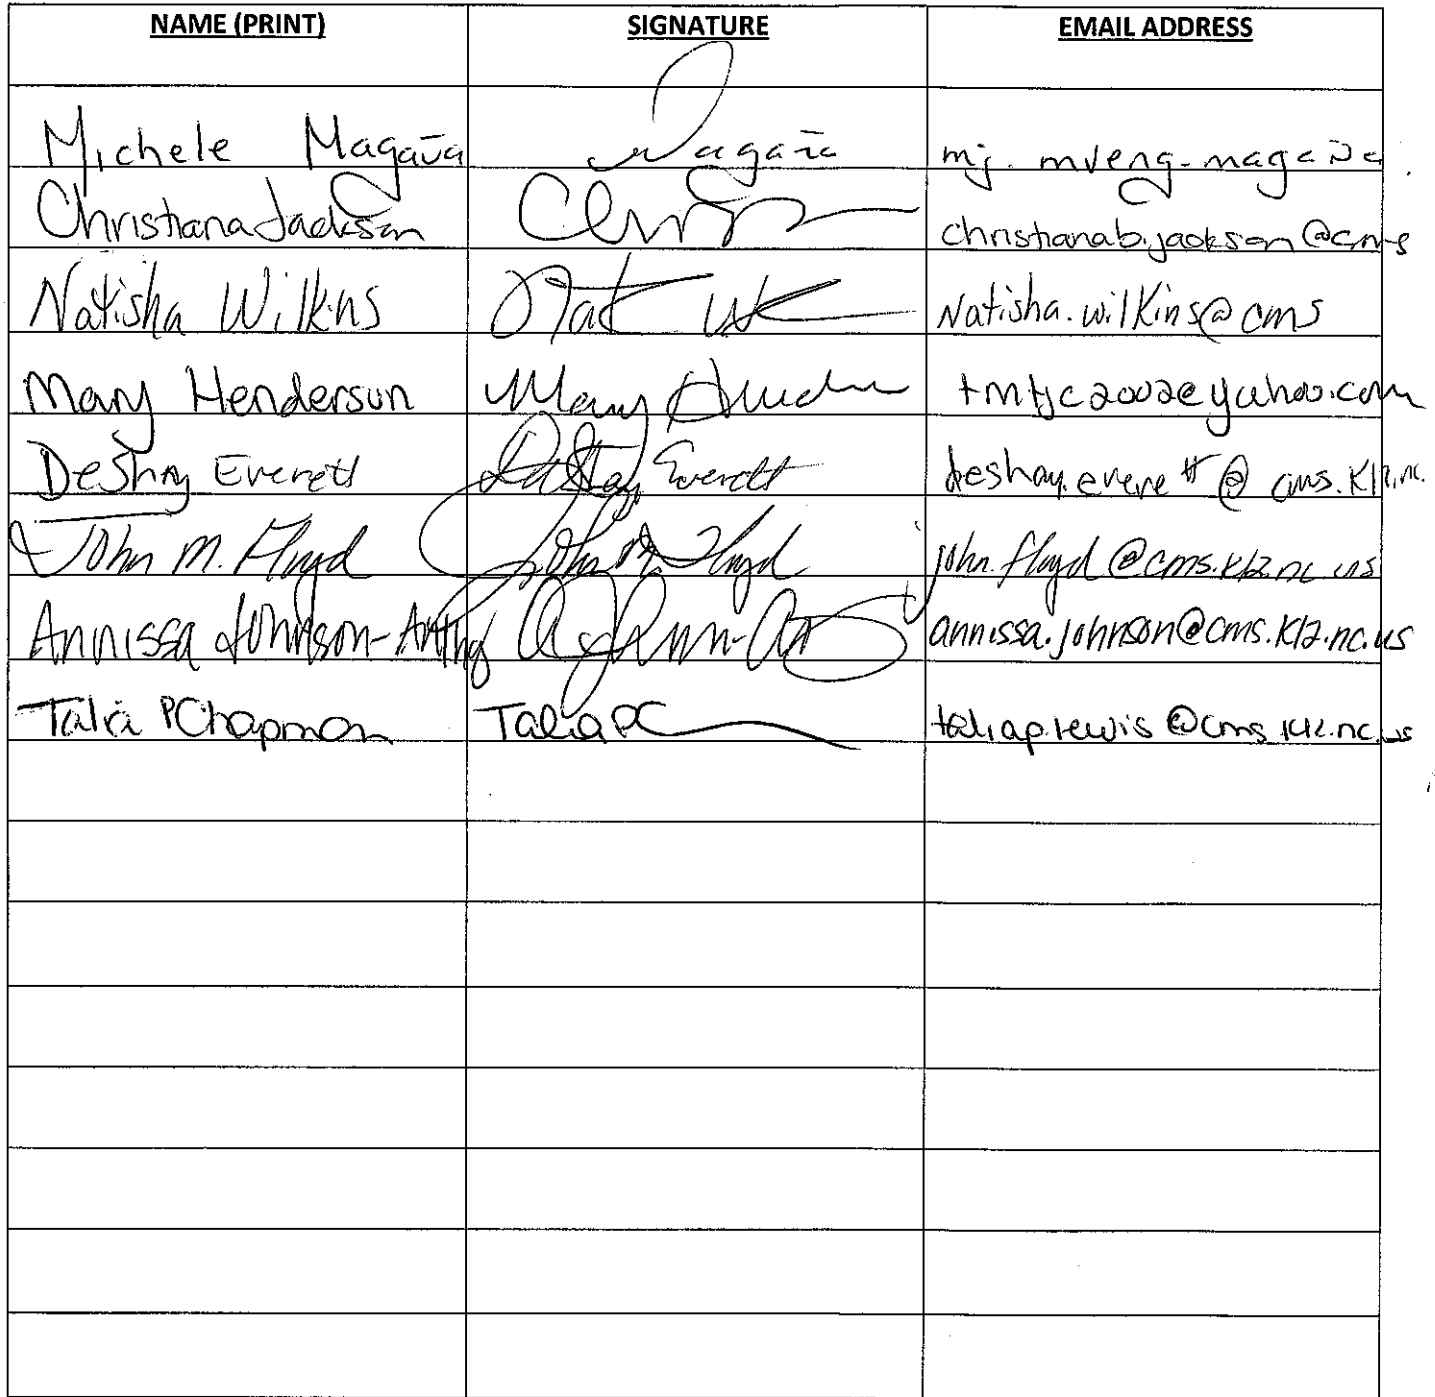 NAME (PRINT) SIGNATURE EMAIL ADDRESS
Michele Magaña Magaña mj.mveng-magaña
Christiana Jackson christianab.jackson@cms
Natisha Wilkins Nat Wk Natisha.wilkins@cms
Mary Henderson Mary tmtjc2002@yahoo.com
DeShay Everett DeShay Everett deshay.everett@cms.k12.nc.
John M. Floyd John M. Floyd john.floyd@cms.k12.nc.us
Annissa Johnson- annissa.johnson@cms.k12.nc.us
Talia PChapman Talia PC taliap.lewis@cms.k12.nc.us